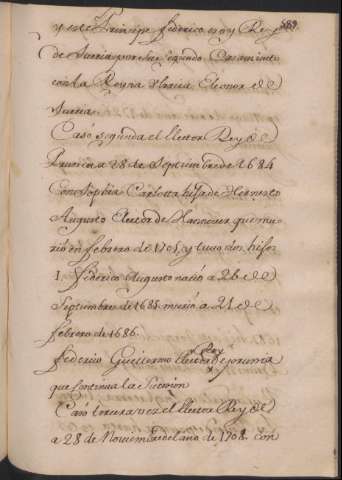 589
y este Principe federico es oy Rey
de Suecia por su segundo Casamiento
con la Reyna Ulrica Eleonor de
Suecia.
Casó segunda el Elector Rey de
Prusia a 28 de Septiembre de 1684
Con Sophia Carlotta hija de Hernesto
Augusto Elector de Hannover que mu
rió en febrero de 1705, y tuvo dos hijos
1. federico Augusto nació a 26 de
Septiembre de 1685 murió a 21 de
febrero de 1686.
federico Guillermo Elector Rey de prusia
que continua la Sucesion
Casó tercera vez el Elector Rey de
a 28 de Noviembre del año de 1708. con